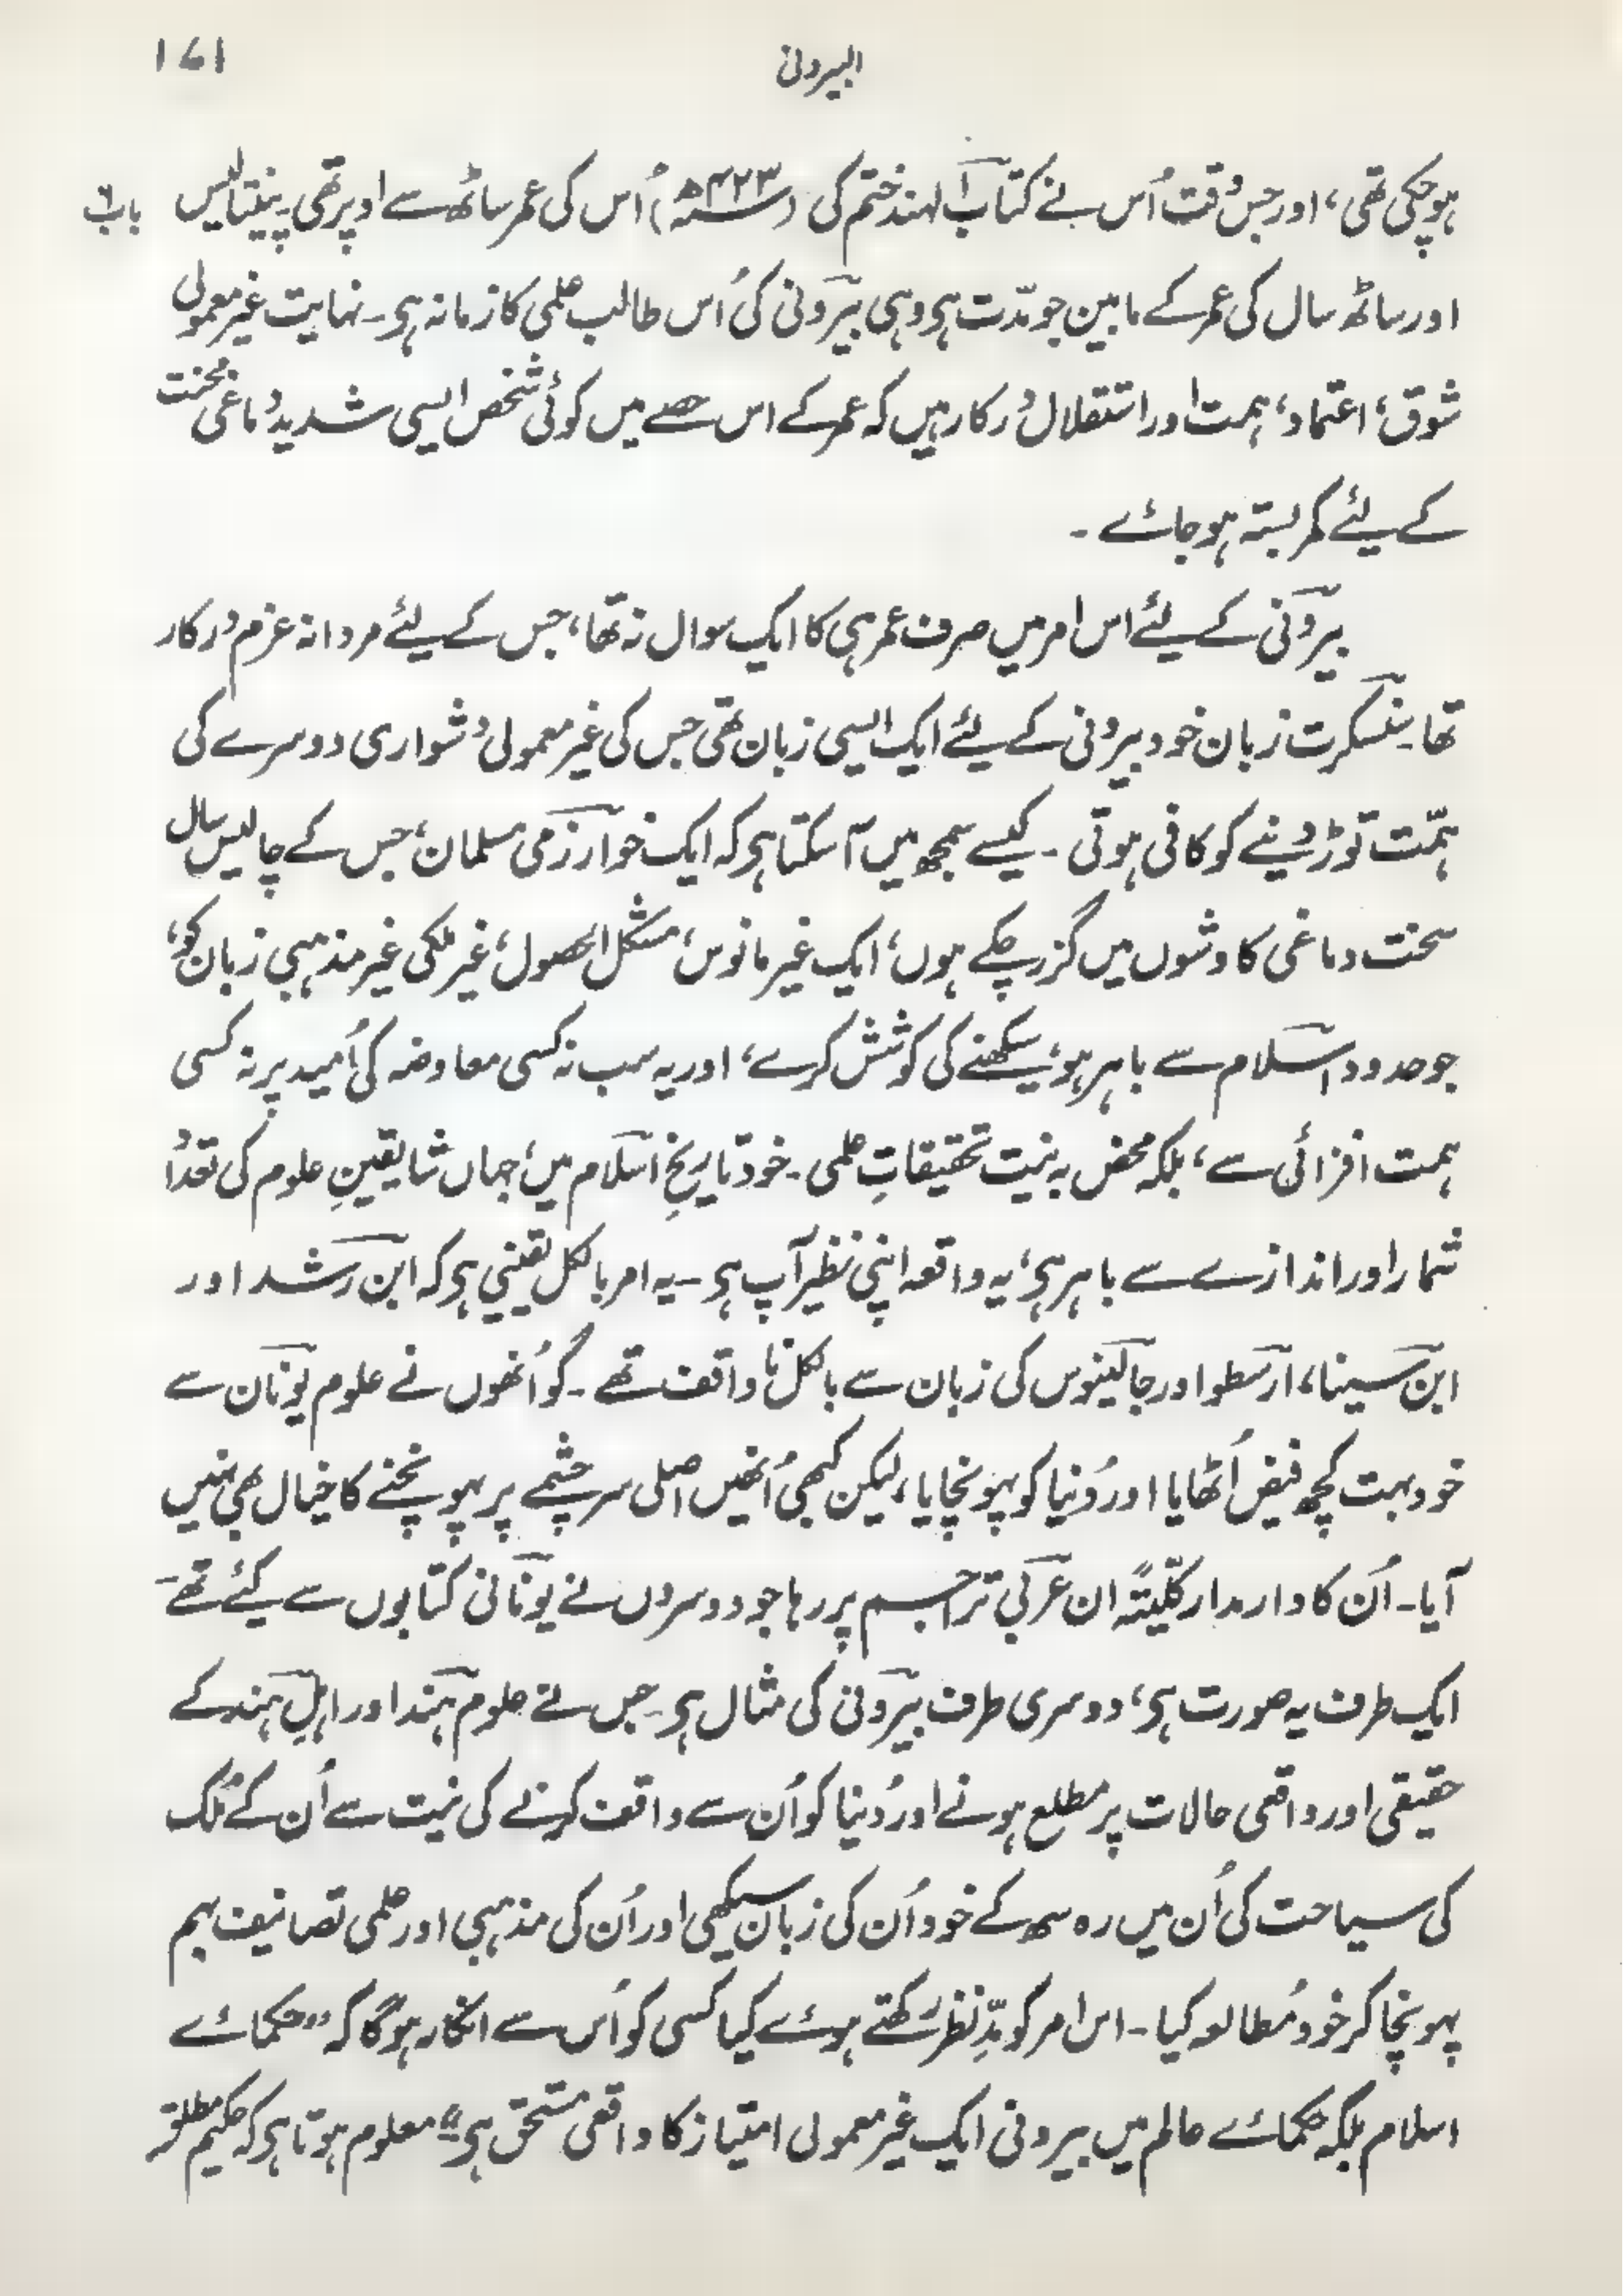 البیرونی
۱۷۱
ہوچکی تھی، اور جس وقت اُس نے کتاب الہند ختم کی (۴۲۳ھ) اُس کی عمر ساٹھ سے اوپر تھی پینتالیس
باب
اور ساٹھ سال کی عمر کے مابین جو مدّت ہی وہی بیرونی کی اُس طالب علمی کا زمانہ ہی۔ نہایت غیر معمولی
شوق، اعتماد، ہمت اور استقلال درکار ہیں کہ عمر کے اس حصے میں کوئی شخص ایسی شدید دماغی محنت
کے لیئے کمر بستہ ہوجائے ۔
بیرونی کے لیئے اس امر میں صرف عمر ہی کا ایک سوال نہ تھا، جس کے لیئے مردانہ عزم درکار
تھا۔ سنسکرت زبان خود بیرونی کے لیئے ایک ایسی زبان تھی جس کی غیر معمولی دشواری دوسرے کی
ہمّت توڑ دینے کو کافی ہوتی ۔ کیسے سمجھ میں آسکتا ہی کہ ایک خوارزمی مسلمان، جس کے چالیس سال
سخت دماغی کاوشوں میں گزر چکے ہوں، ایک غیر مانوس، مشکل الحصول، غیر ملکی غیر مذہبی زبان کو،
جو حدود اسلام سے باہر ہو، سیکھنے کی کوشش کرے، اور یہ سب نہ کسی معاوضہ کی اُمید پر نہ کسی
ہمت افزائی سے، بلکہ محض بہ نیت تحقیقاتِ علمی ۔ خود تاریخِ اسلام میں، جہاں شایقینِ علوم کی تعداد
شمار اور اندازے سے باہر ہی، یہ واقعہ اپنی نظیر آپ ہی ۔ یہ امر بالکل یقینی ہی کہ ابن رشد اور
ابن سینا، ارسطو اور جالینوس کی زبان سے بالکل نا واقف تھے ۔ گو اُنھوں نے علوم یونان سے
خود بہت کچھ فیض اُٹھایا اور دُنیا کو پہونچایا، لیکن کبھی اُنھیں اصلی سرچشمے پر پہونچنے کا خیال بھی نہیں
آیا ۔ اُن کا دار مدار کلّیتہً ان عربی تراجم پر رہا جو دوسروں نے یونانی کتابوں سے کیئے تھے ۔
ایک طرف یہ صورت ہی، دوسری طرف بیرونی کی مثال ہی ۔ جس نے علوم ہند اور اہلِ ہند کے
حقیقی اور واقعی حالات پر مطلع ہونے اور دُنیا کو اُن سے واقف کرنے کی نیت سے اُن کے مُلک
کی سیاحت کی اُن میں رہ سہ کے خود اُن کی زبان سیکھی اور اُن کی مذہبی اور علمی تصانیف بہم
پہونچا کر خود مُطالعہ کیا ۔ اس امر کو مدِّنظر رکھتے ہوئے کیا کسی کو اُس سے انکار ہوگا کہ ”حکمائے
اسلام بلکہ حکمائے عالم میں بیرونی ایک غیر معمولی امتیاز کا واقعی مستحق ہی“ معلوم ہوتا ہی کہ حکیم مطلق